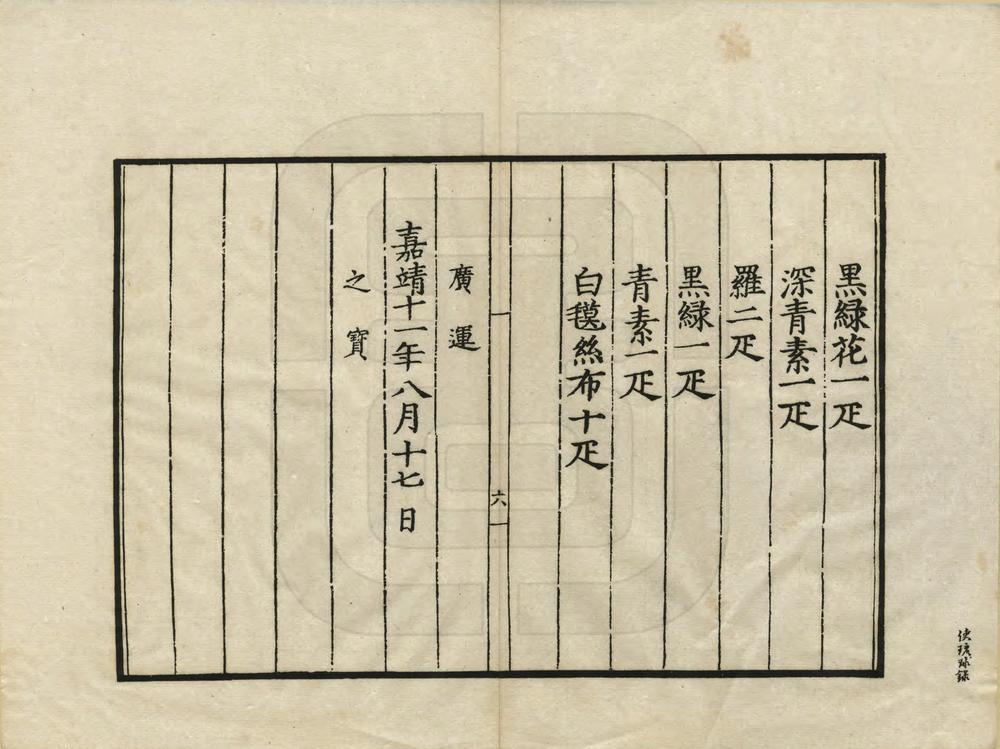 黑綠花一疋
深青素一疋
羅二疋
黑綠一疋
青素一疋
白氁絲布十疋
六
廣運
嘉靖十一年八月十七日
之寶
使琉球錄